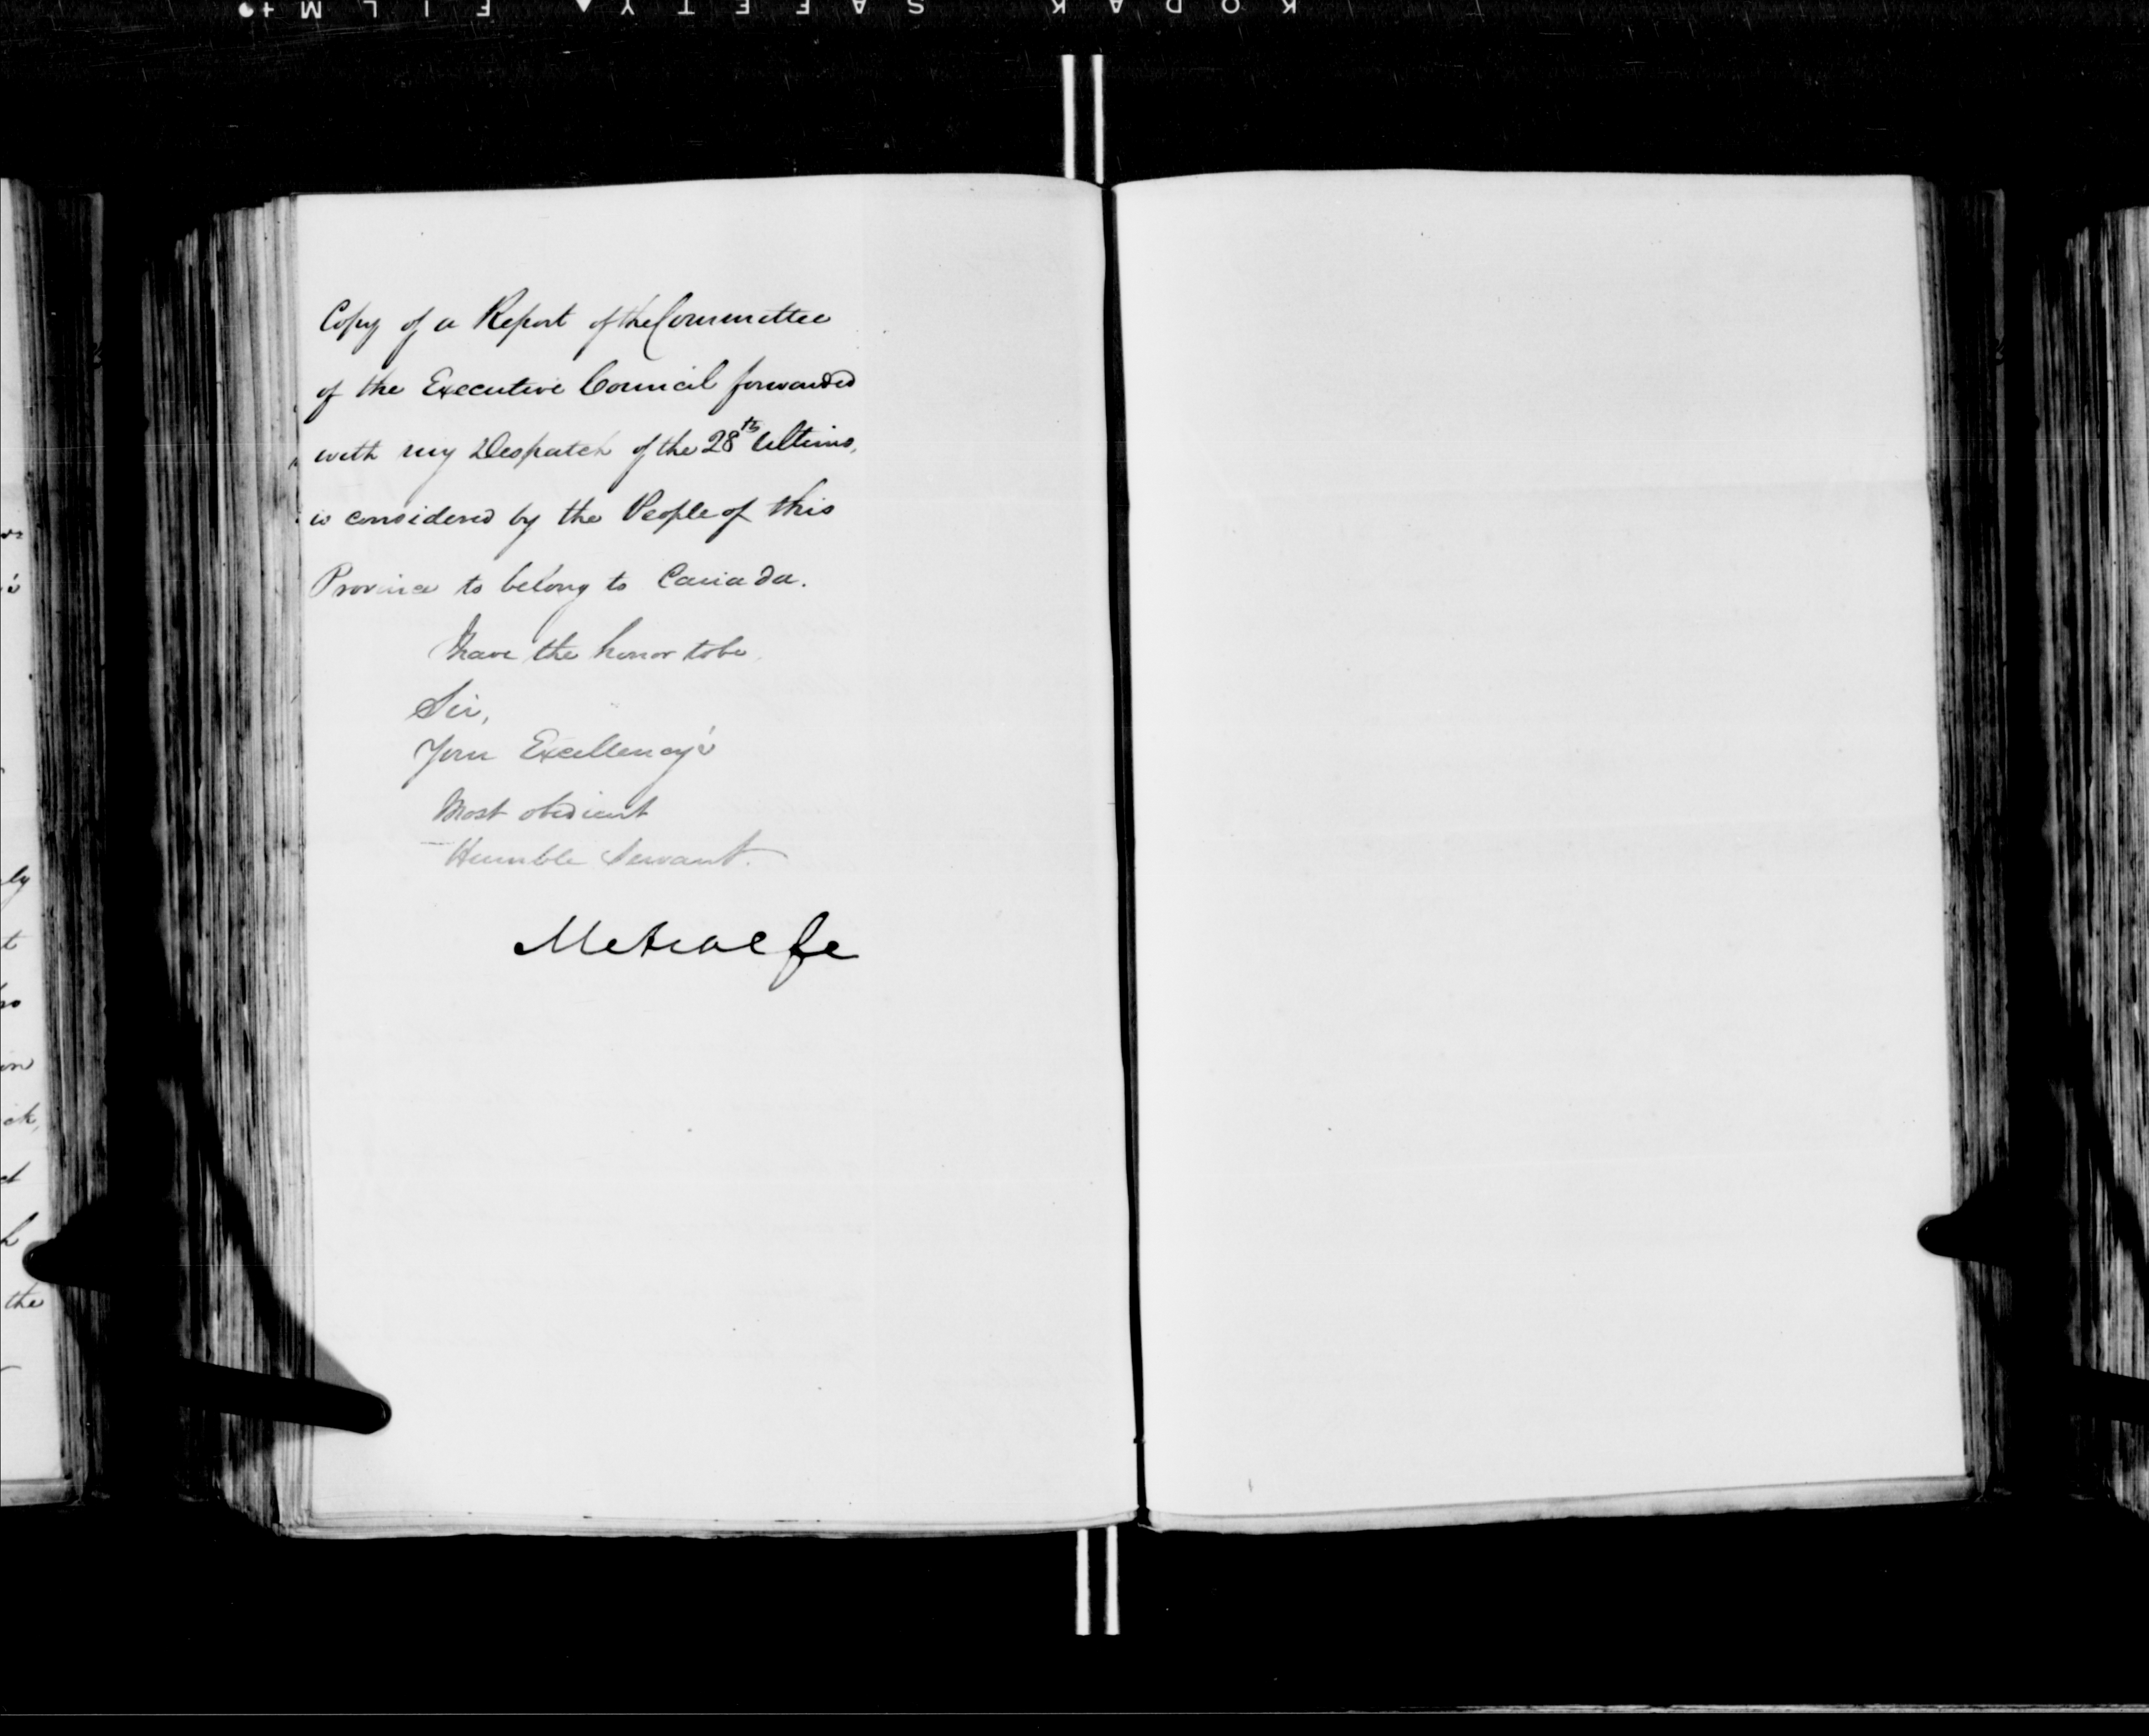 Copy of a Report of the Committee
of the Executive Council forwarded
with my Despatch of the 28th Ultimo,
is considered by the People of this
Province to belong to Canada.
I have the honor to be
Sir,
Your Excellency's
Most obedient
Humble Servant.
Metcalfe
ly
t
the
KODAK SAFETY FILM